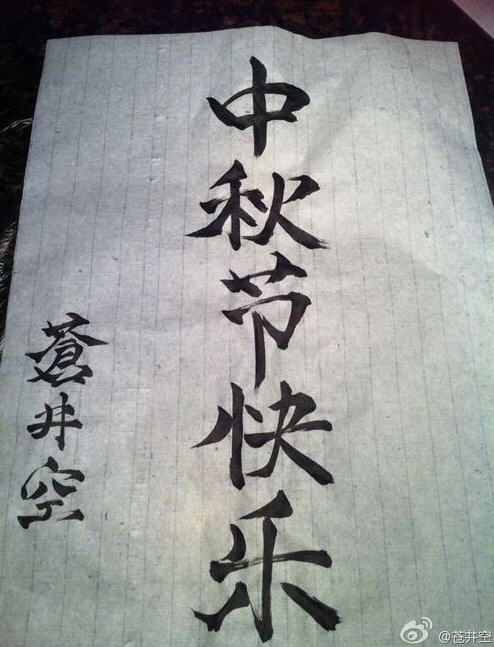 中秋节快乐
蒼井空
@苍井空